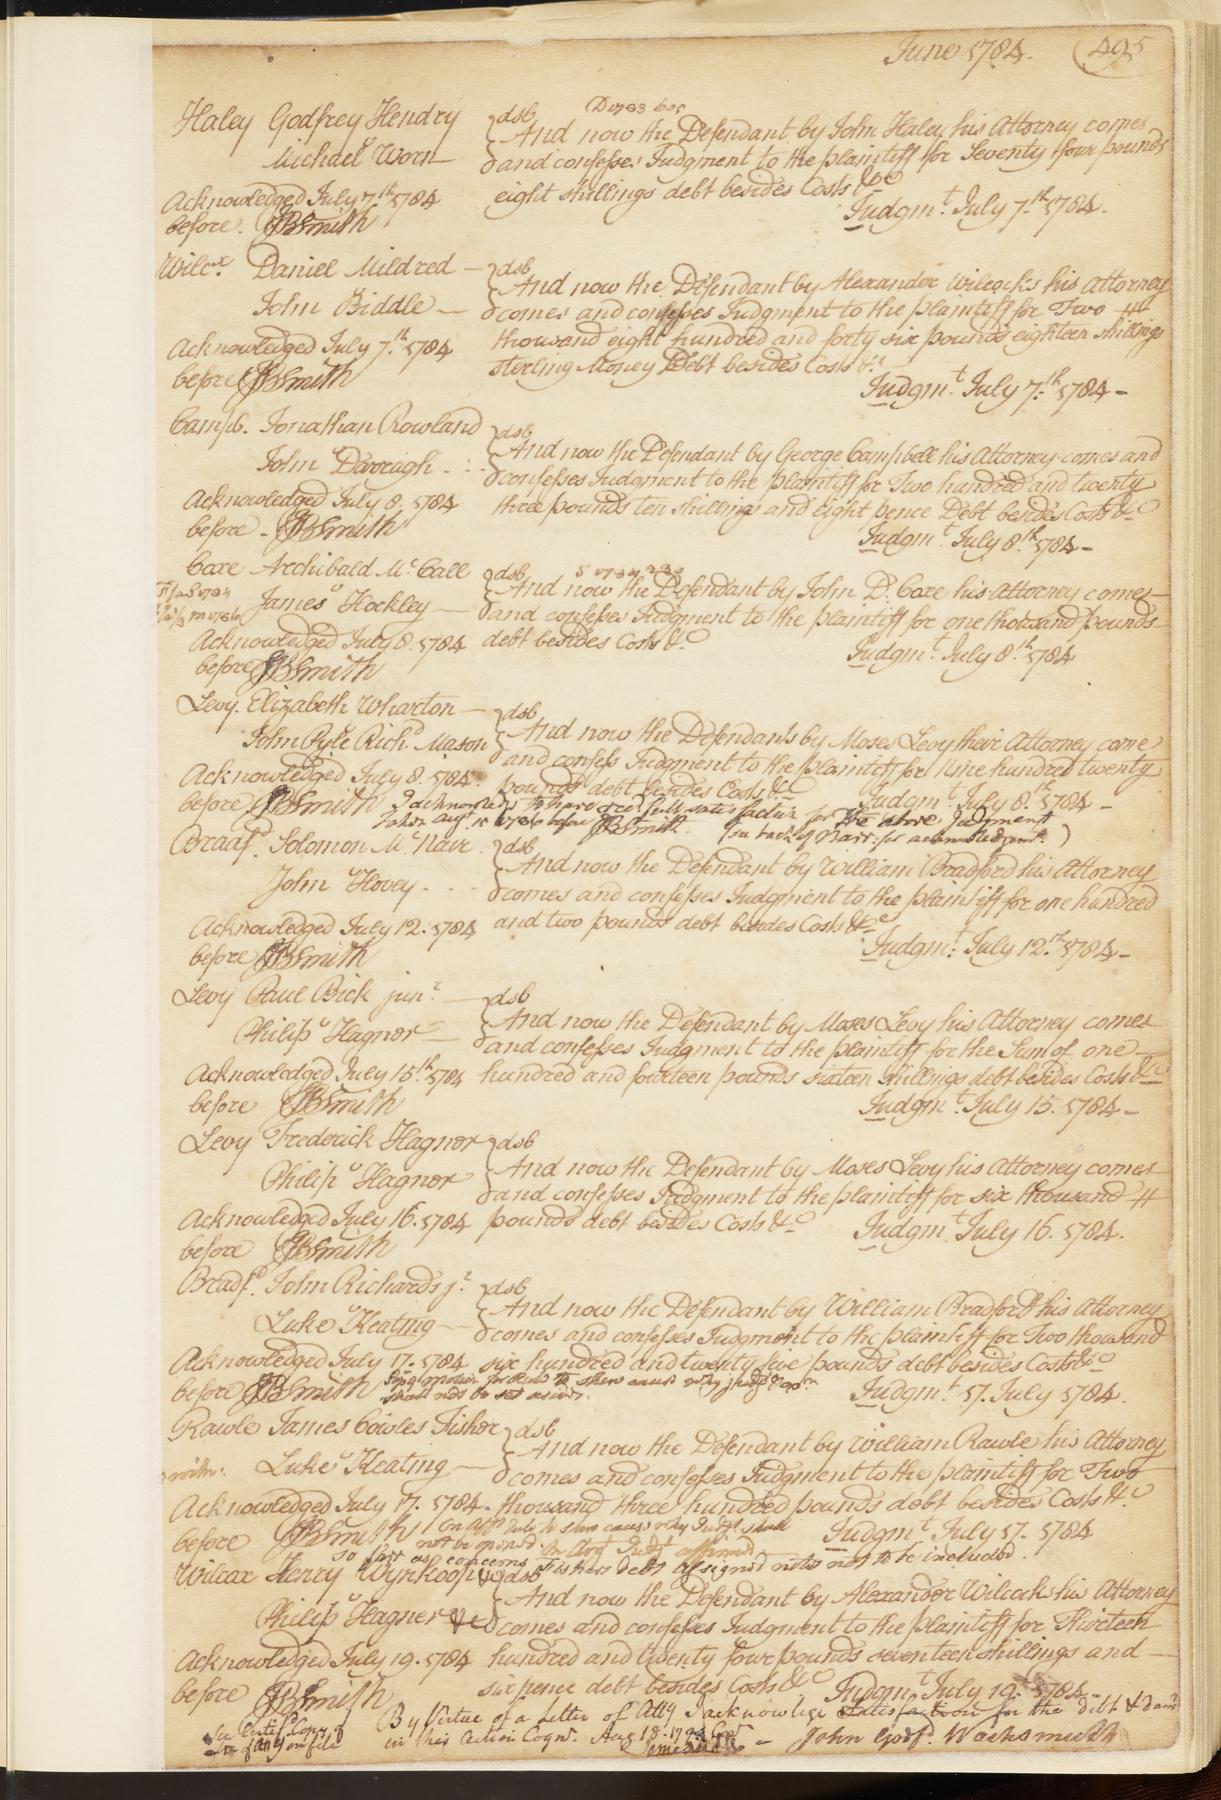 June 1784. 495
Haley Godfrey Hendry } dsb
v
Michael Worn
And now the Defendant by John Haley his Attorney comes
and confesses Judgment to the plaintiff for Seventy four pounds
eight shillings debt besides Costs &c
Acknowledged July 7th 1784
before. JBSmith
Judgmt. July 7th 1784.
Wilcx. Daniel Mildred — } dsb
v
John Biddle —
And now the Defendant by Alexander Wilcocks his Attorney
comes and confesses Judgment to the plaintiff for Two
thousand eight hundred and forty six pounds eighteen shillings
sterling Money Debt besides Costs &c
Acknowledged July 7th 1784
before JBSmith
Judgmt. July 7th 1784 -
Campb. Jonathan Rowland } dsb
v
John Darragh
And now the Defendant by George Campbell his Attorney comes and
confesses Judgment to the plaintiff for Two hundred and twenty
three pounds ten shillings and eight pence Debt besides Costs &c
Acknowledged July 8. 1784
before - JBSmith
Judgmt. July 8th 1784 -
Coxe Archibald McCall } dsb
v
James Hockley —
And now the Defendant by John D. Coxe his Attorney comes
and confesses Judgment to the plaintiff for one thousand pounds
debt besides Costs &c
Acknowledged July 8. 1784
before JBSmith
Judgmt. July 8th 1784
Levy. Elizabeth Wharton — } dsb
v
John Pyle Richd. Mason
And now the Defendants by Moses Levy their Attorney come
and confess Judgment to the plaintiff for Nine hundred twenty
pounds debt besides Costs &c
Acknowledged July 8. 1784.
before JBSmith
Judgmt. July 8th 1784 -
I acknowledge to have recd. full satisfaction for the above Judgment
before JBSmith (see back of Narr: for acknowledgmt.)
Bradf. Solomon McNair } dsb
v
John Hovey
And now the Defendant by William Bradford his Attorney
comes and confesses Judgment to the plaintiff for one hundred
and two pounds debt besides Costs &c
Acknowledged July 12. 1784
before JBSmith
Judgmt. July 12th 1784 -
Levy Paul Bick junr. — } dsb
v
Philip Hagnor —
And now the Defendant by Moses Levy his Attorney comes
and confesses Judgment to the plaintiff for the Sum of one
hundred and fourteen pounds sixteen shillings debt besides Costs &c
Acknowledged July 15th 1784
before JBSmith
Judgmt. July 15. 1784 -
Levy Frederick Hagnor } dsb
v
Philip Hagnor
And now the Defendant by Moses Levy his Attorney comes
and confesses Judgment to the plaintiff for six thousand
pounds debt besides Costs &c
Acknowledged July 16. 1784
before JBSmith
Judgmt. July 16. 1784.
Bradfd. John Richards jr. } dsb
v
Luke Keating —
And now the Defendant by William Bradford his Attorney
comes and confesses Judgment to the plaintiff for Two thousand
six hundred and twenty five pounds debt besides Costs &c
Acknowledged July 17. 1784
before JBSmith
to shew cause why
should not be set aside.
Judgmt. 17. July 1784.
Rawle James Cowles Fisher } dsb
v
Luke Keating —
And now the Defendant by William Rawle his Attorney
comes and confesses Judgment to the plaintiff for Two
thousand three hundred pounds debt besides Costs &c
Acknowledged July 17. 1784 -
before JBSmith
Rule to shew cause why Judgt. shall
not be opened. Judgt. affirmed
so far as concerns Fishers debt assigned notes not to be included.
Judgmt. July 17. 1784
Wilcox Henry Wynkoop } dsb
v
Philip Hagner
And now the Defendant by Alexander Wilcocks his Attorney
comes and confesses Judgment to the plaintiff for Thirteen
hundred and twenty four pounds seventeen shillings and
six pence debt besides Costs &c
Acknowledged July 19. 1784
before JBSmith
Judgmt. July 19. 1784 -
By Virtue of a Letter of Atty I acknowlege Satisfaction for the debt &
in this Action
John Godf. Wachsmuth